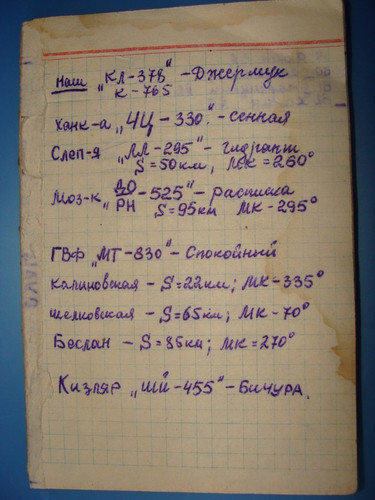 Наш „КЛ-378" - Джермук
К-765
Ханк-а „ЧЦ-330" - сенная
Слеп-я „ЛЛ-295" - гидрант
S=50км, МК=260°
Моз-к „ДО РН-525" - расписка
S=95км МК-295°
ГВФ „МТ-830" - Спокойный
Калиновская - S=22км; МК-335°
шелковская - S=65км; МК-70°
Беслан - S=85км; МК=270°
Кизляр „ШЙ-455" - Бичура.